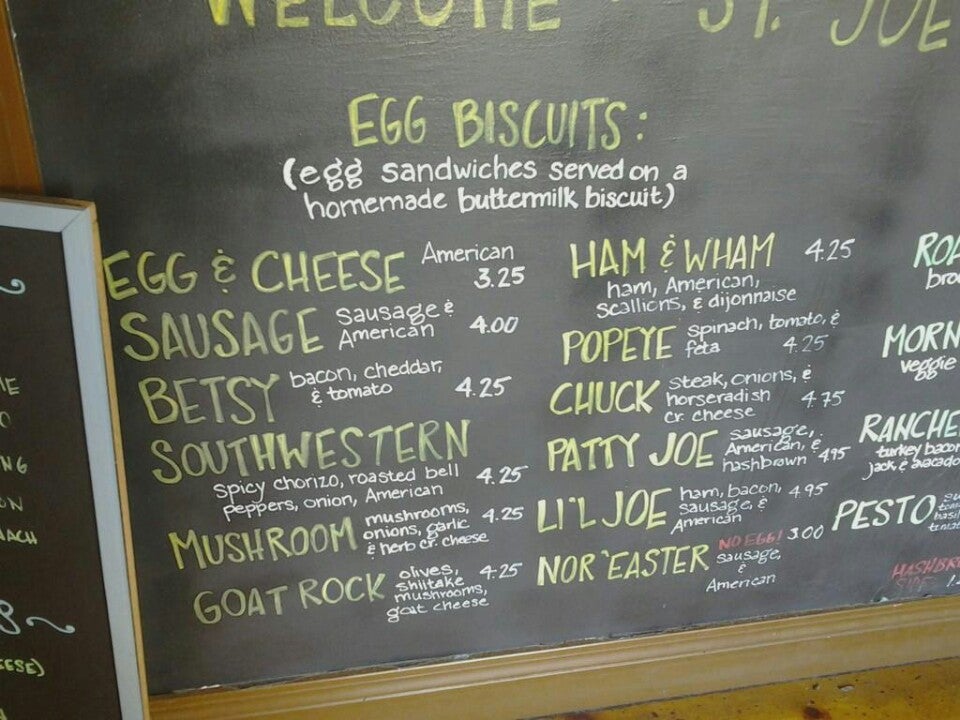 WELCOME ST. JOE
EGG BISCUITS:
(egg sandwiches served on a
homemade buttermilk biscuit)
EGG & CHEESE American
3.25
SAUSAGE sausage &
American 4.00
BETSY bacon, cheddar,
& tomato 4.25
SOUTHWESTERN
spicy chorizo, roasted bell
peppers, onion, American 4.25
MUSHROOM mushrooms,
onions, garlic
& herb cr. cheese 4.25
GOAT ROCK olives,
shiitake
mushrooms,
goat cheese 4.25
HAM & WHAM 4.25
ham, American,
scallions, & dijonnaise
POPEYE spinach, tomato, &
feta 4.25
CHUCK steak, onions, &
horseradish
cr. cheese 4.75
PATTY JOE sausage,
American, &
hashbrown 4.95
LI'L JOE ham, bacon,
sausage, &
American 4.95
NOR'EASTER NO EGG! 3.00
sausage,
&
American
MORN
veggie
RANCHE
turkey bacon
jack & avocado
PESTO